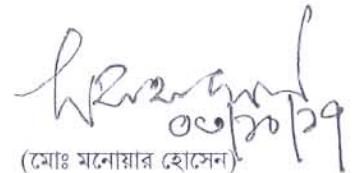 ০৩/১০/১৭
(মোঃ মনোয়ার হোসেন)